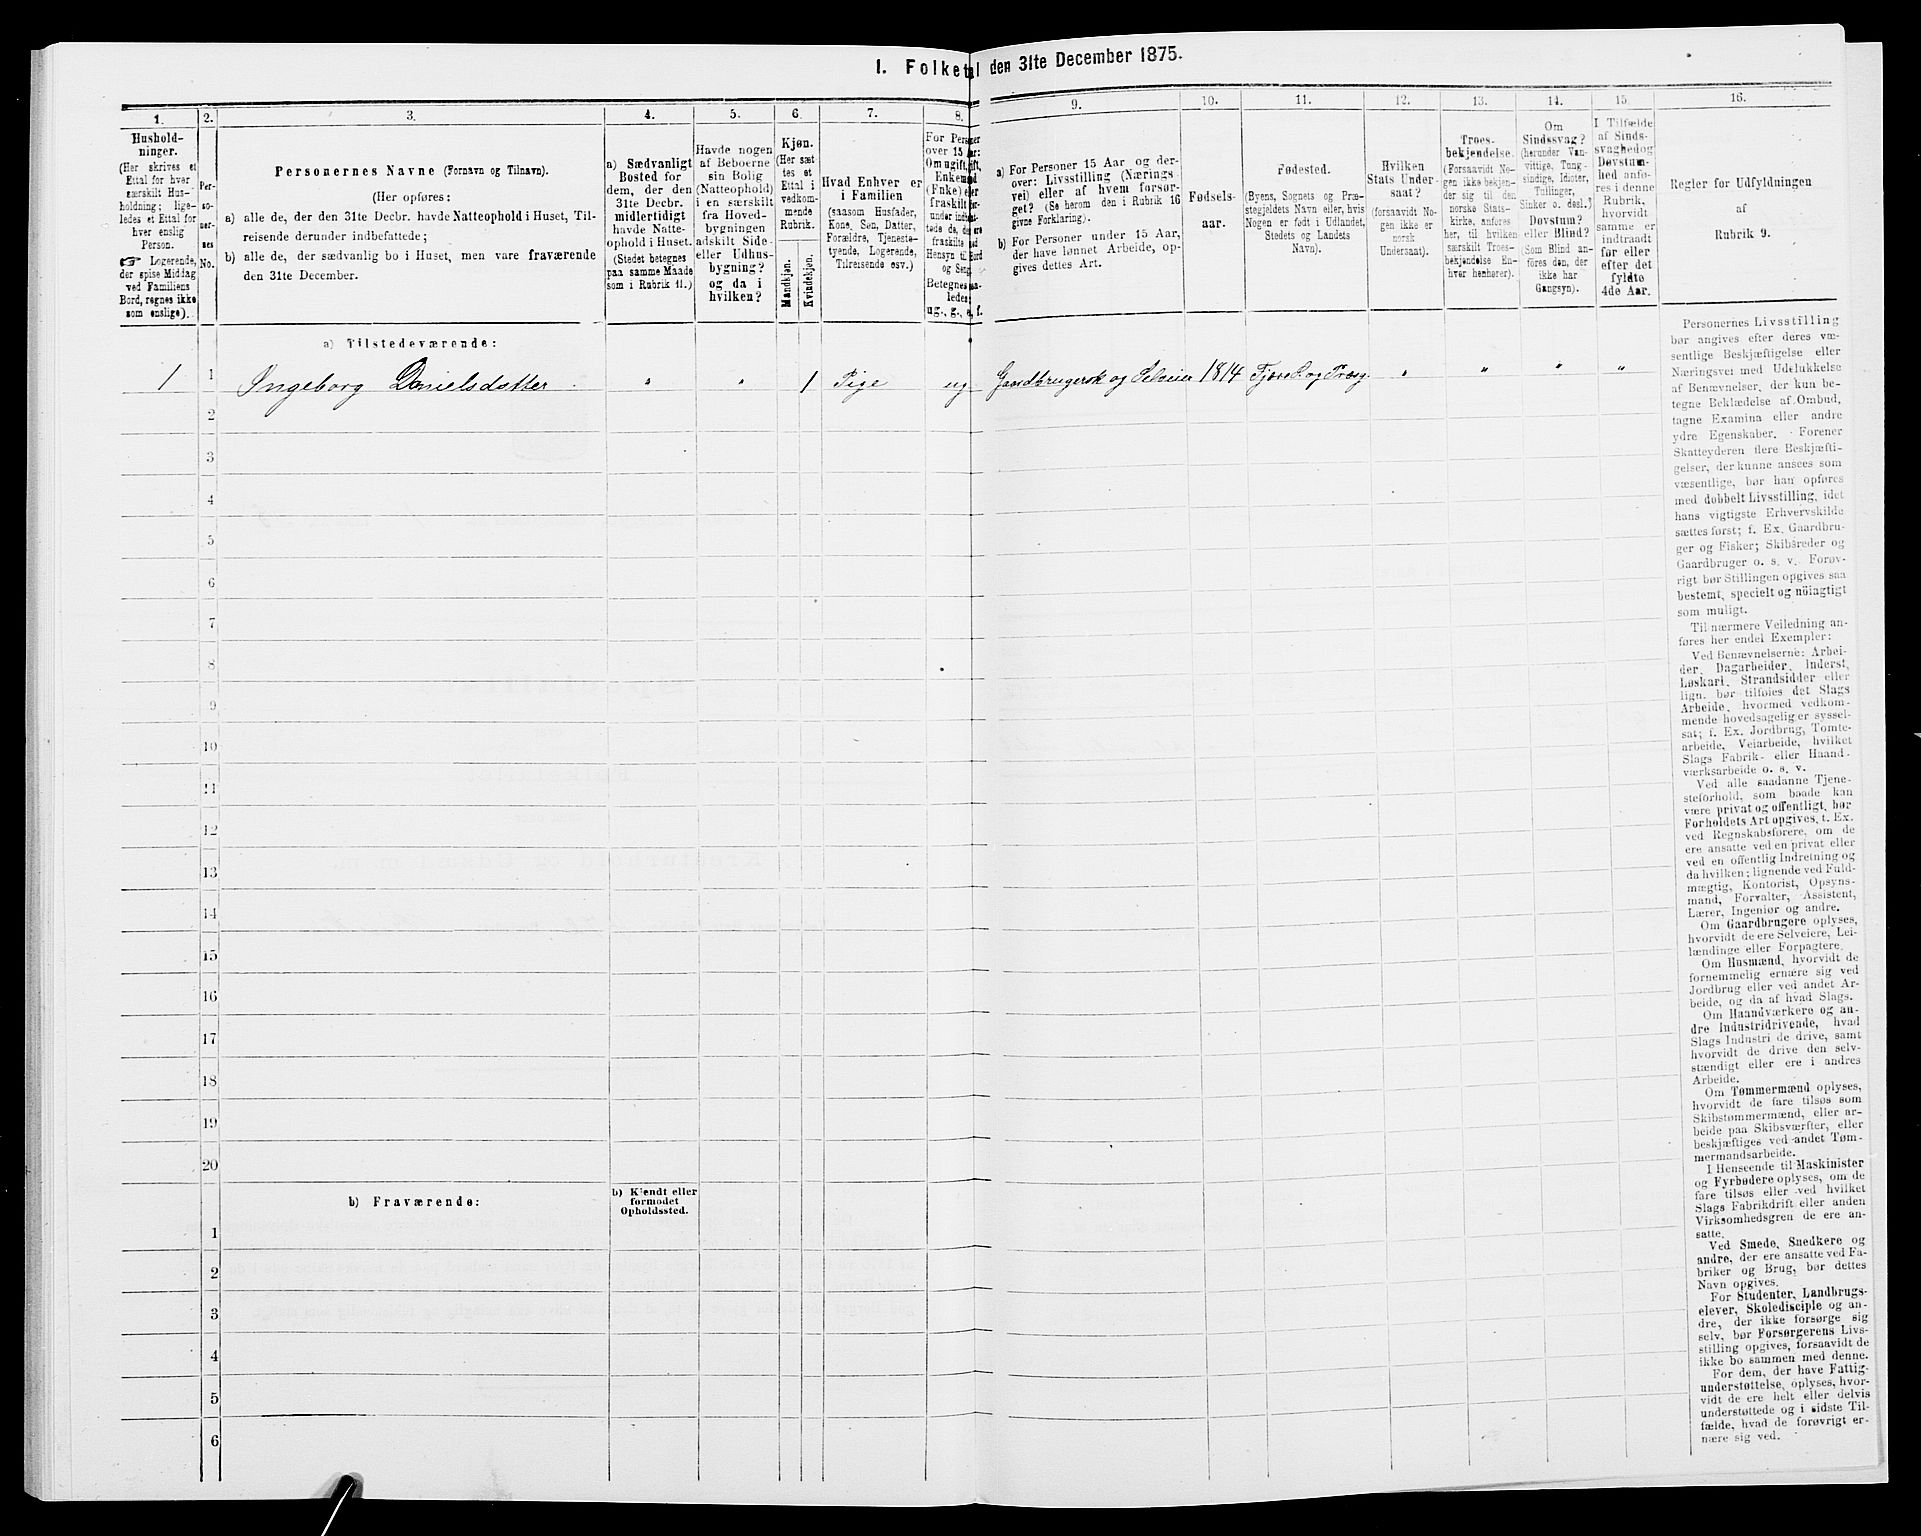 1. Folketal den 31te December 1875.
1.
2.
3.
4.
5.
6.
7.
8.
9.
10.
11.
12.
13.
14.
15
16.
Hushold-
ninger.
(Her skrives et
Ettal for hver
særskilt Hus-
holdning; lige-
ledes et Ettal for
hver enslig
Person.
☞ Logerende,
der spise Middag
ved Familiens
Bord, regnes ikke
som enslige).
Per-
so-
ner-
nes
No.
Personernes Navne (Fornavn og Tilnavn).
(Her opføres:
a) alle de, der den 31te Decbr. havde Natteophold i Huset, Til-
reisende derunder indbefattede;
b) alle de, der sædvanlig bo i Huset, men vare fraværende
den 31te December.
a) Sædvanligt
Bosted for
dem, der den
31te Decbr.
midlertidigt
havde Natte-
ophold i Huset.
(Stedet betegnes
paa samme Maade
som i Rubrik 11.)
Havde nogen
af Beboerne
sin Bolig
(Natteophold)
i en særskilt
fra Hoved-
bygningen
adskilt Side-
eller Udhus-
bygning?
og da i
hvilken?
Kjøn.
(Her sæt-
tes et
Ettal i
vedkom-
mende
Rubrik.
Mandkjøn.
Kvindekjøn.
Hvad Enhver er
i Familien
(saasom Husfader,
Kone, Søn, Datter,
Forældre, Tjeneste-
tyende, Logerende,
Tilreisende osv.)
For Personer
over 15 Aar:
Om ugift, gift,
Enkemand
(Enke) eller
fraskilt
Betegnes saa-
ledes:
ug., g., e, f.
a) For Personer 15 Aar og der-
over: Livsstilling (Nærings
vei) eller af hvem forsør-
get? (Se herom den i Rubrik 16
givne Forklaring).
b) For Personer under 15 Aar,
der have lønnet Arbeide, op-
gives dettes Art.
Fødsels-
aar.
Fødested.
(Byens, Sognets og Præ-
stegjeldets Navn eller, hvis
Nogen er født i Udlandet,
Stedets og Landets
Navn).
Hvilken
Stats Under-
saat?
(forsaavidt No-
gen ikke er
norsk
Undersaat).
Troes-
bekjendelse.
(Forsaavidt No-
gen ikke bekjen-
der sig til den
norske Stats-
kirke, anføres
her, til hvilken
særskilt Troes-
bekjendelse En-
hver henhører).
Om
Sindssvag?
(herunder Van-
vittige, Tung-
sindige, Idioter,
Tullinger,
Sinker o. desl.)
Døvstum?
eller Blind?
(Som Blind an-
føres den, der
ikke har
Gangsyn).
I Tilfælde
af Sinds-
svaghed og
Døvstum-
hed anfø-
res i denne
Rubrik,
hvorvidt
samme er
indtraadt
før eller
efter det
fyldte
4de Aar.
Regler for Udfyldningen
af
Rubrik 9.
a) Tilstedeværende:
1 1 Ingeborg Danielsdatter " " 1 Pige ug Gaardbrugersk og Selveier 1814 " " " "
2
3
4
5
6
7
8
9
10
11
12
13
14
15
16
17
18
19
20
b) Fraværende:
b) Kjendt eller
formodet
Opholdssted.
1
2
3
4
5
6
Personernes Livsstilling
bør angives efter deres væ-
sentlige Beskjæftigelse eller
Næringsvei med Udelukkelse
af Benævnelser, der kun be-
tegne Beklædelse af Ombud,
tagne Examina eller andre
ydre Egenskaber. Forener
Skatteyderen flere Beskjæfti-
gelser, der kunne ansees som
væsentlige, bør han opføres
med dobbelt Livsstilling, idet
hans vigtigste Erhvervskilde
sættes først; f. Ex. Gaardbru-
ger og Fisker; Skibsreder og
Gaardbruger o. s. v. Forøv-
rigt bør Stillingen opgives saa
bestemt, specielt og nøiagtigt
som muligt.
Til nærmere Veiledning an-
føres her endel Exempler:
Ved Benævnelserne: Arbei-
der, Dagarbeider, Inderst,
Løskarl, Strandsidder eller
lign. bør tilføies det Slags
Arbeide, hvormed vedkom-
mende hovedsagelig er syssel-
sat; f. Ex. Jordbrug, Tomte-
arbeide, Veiarbeide, hvilket
Slags Fabrik- eller Haand-
værksarbeide o. s. v.
Ved alle saadanne Tjene-
steforhold, som baade kan
være privat og offentligt, bør
Forholdets Art opgives, t. Ex.
ved Regnskabsførere, om de
ere ansatte ved en privat eller
ved en offentlig Indretning og
da hvilken; lignende ved Fuld-
mægtig, Kontorist, Opsyns-
mand, Forvalter, Assistent,
Lærer, Ingeniør og andre.
Om Gaardbrugere oplyses,
hvorvidt de ere Selveiere, Lei-
lændinge eller Forpagtere.
Om Husmænd, hvorvidt de
fornemmelig ernære sig ved
Jordbrug eller ved andet Ar-
beide, og da af hvad Slags.
Om Haandværkere og an-
dre Industridrivende, hvad
Slags Industri de drive, samt
hvorvidt de drive den selv-
stændigt eller ere i andres
Arbeide.
Om Tømmermænd oplyses,
hvorvidt de fare tilsøs som
Skibstømmermænd, eller ar-
beide paa Skibsværfter, eller
beskjæftiges ved andet Tøm-
mermandsarbeide.
I Henseende til Maskinister
og Fyrbødere oplyses, om de
fare tilsøs eller ved hvilket
Slags Fabrikdrift eller anden
Virksomhedsgren de ere an-
satte.
Ved Smede, Snedkere og
andre, der ere ansatte ved Fa-
briker og Brug, bør dettes
Navn opgives.
For Studenter, Landbrugs-
elever, Skoledisciple og an-
dre, der ikke forsørge sig
selv, bør Forsørgerens Livs-
stilling opgives, forsaavidt de
ikke bo sammen med denne.
For dem, der have Fattig-
understøttelse, oplyses, hvor-
vidt de ere helt eller delvis
understøttede og i sidste Til-
fælde, hvad de forøvrigt er-
nære sig ved.